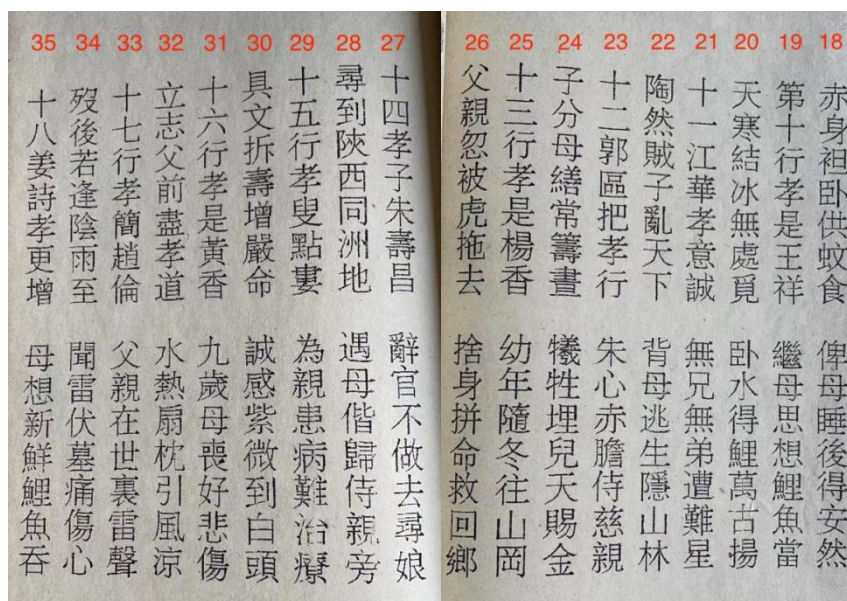 18
赤身袒卧供蚊食 俾母睡後得安然
19
第十行孝是王祥 繼母思想鯉魚當
20
天寒結冰無處覓 卧水得鯉萬古揚
21
十一江華孝意誠 無兄無弟遭難星
22
陶然賊子亂天下 背母逃生隱山林
23
十二郭區把孝行 朱心赤膽侍慈親
24
子分母繕常籌晝 犧牲埋兒天賜金
25
十三行孝是楊香 幼年隨冬往山岡
26
父親忽被虎拖去 捨身拼命救回鄉
27
十四孝子朱壽昌 辭官不做去尋娘
28
尋到陝西同洲地 遇母偕歸侍親旁
29
十五行孝叟點婁 為親患病難治療
30
具文拆壽增嚴命 誠感紫微到白頭
31
十六行孝是黃香 九歲母喪好悲傷
32
立志父前盡孝道 水熱扇枕引風涼
33
十七行孝簡趙倫 父親在世裏雷聲
34
歿後若逢陰雨至 聞雷伏墓痛傷心
35
十八姜詩孝更增 母想新鮮鯉魚吞